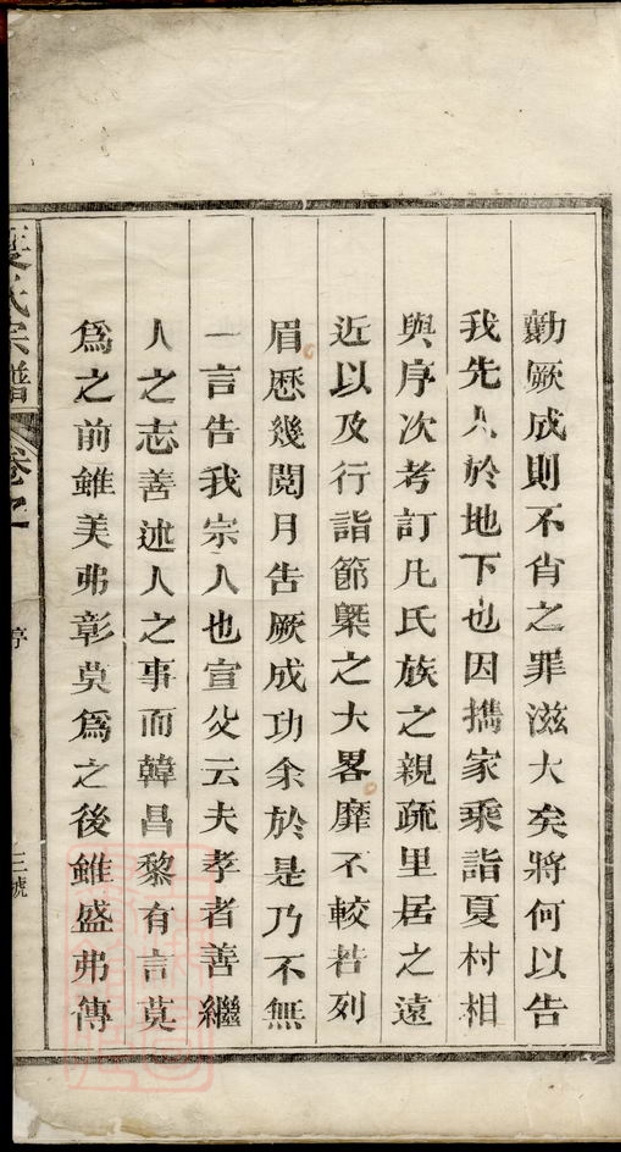 勷厥成則不肖之罪滋大矣將何以告
我先人於地下也因攜家乘詣夏村相
與序次考訂凡氏族之親疏里居之遠
近以及行詣節槩之大畧靡不較若列
眉歷幾閱月告厥成功余於是乃不無
一言告我宗人也宣父云夫孝者善繼
人之志善述人之事而韓昌黎有言莫
為之前雖美弗彰莫為之後雖盛弗傳
氏宗譜 卷之一 序 三號